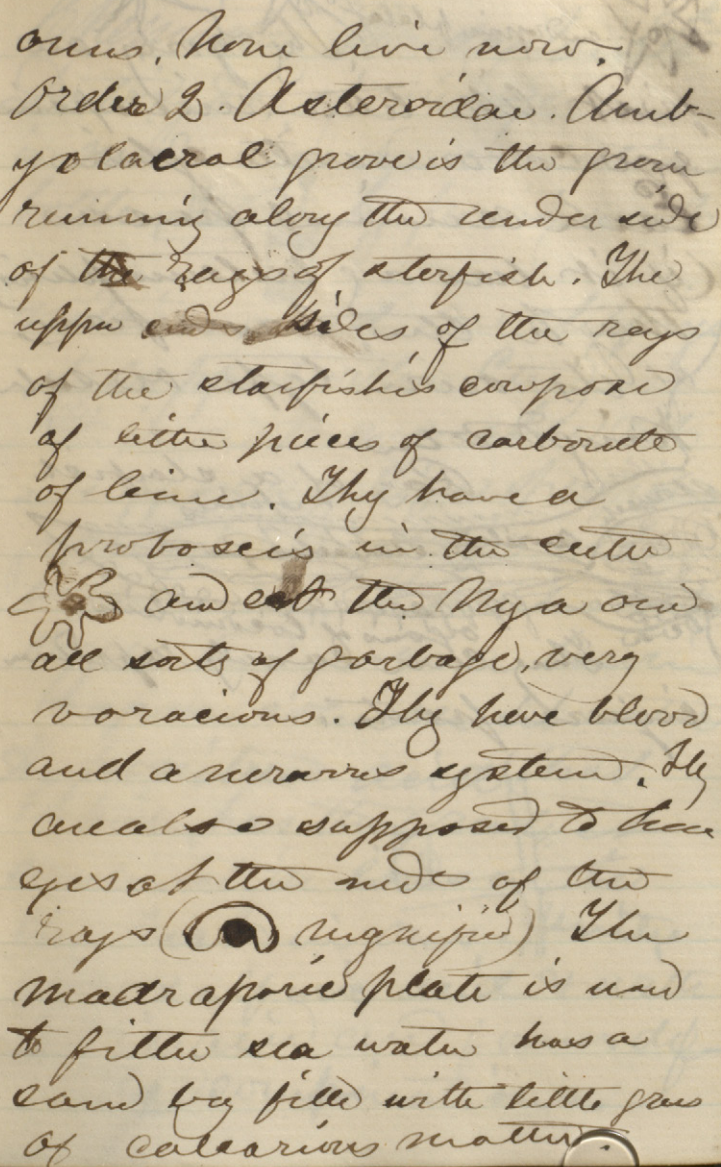 None live now.
Order 2. Asteroidae. Amb-
yolacral grove is the grove
running along the under side
of the rays of starfish. The
upper ends sides of the rays
of the starfishis compose
of little pieces of carbonate
of lime. Thy have a
proboscis in the cente
and eat the Mya and
all sorts of garbage, very
voracious. Thy have blood
and a nervous system. Thy
are also supposed to have
eyes at the ends of the
rays ( magnified) The
madraporic plate is used
to filter sea water has a
sand bag filled with little
of calcarious matter.